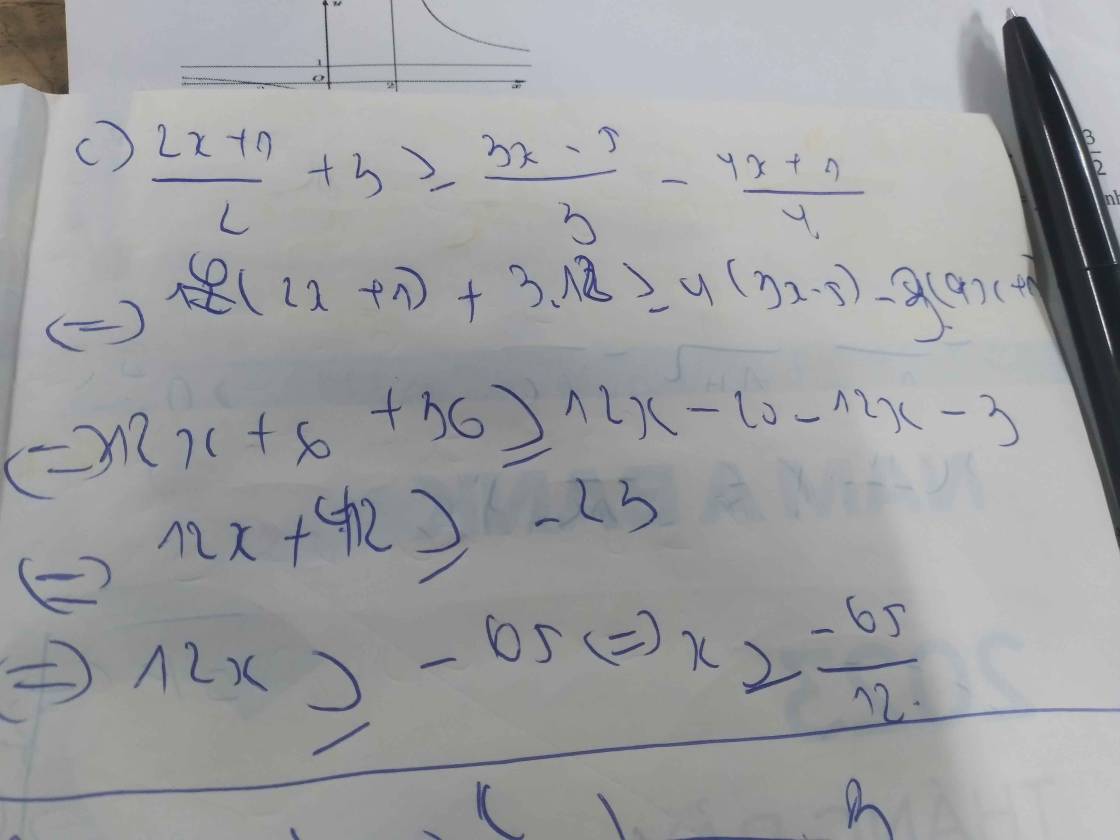 c) \frac{2x+1}{2} + 3 ≥ \frac{3x-5}{3} - \frac{4x+1}{4}
(=) 6(2x+1) + 3.12 ≥ 4(3x-5) - 3(4x+1)
(=) 12x + 6 + 36 ≥ 12x - 20 - 12x - 3
(=) 12x + 42 ≥ -23
(=) 12x ≥ -65 (=) x ≥ \frac{-65}{12}